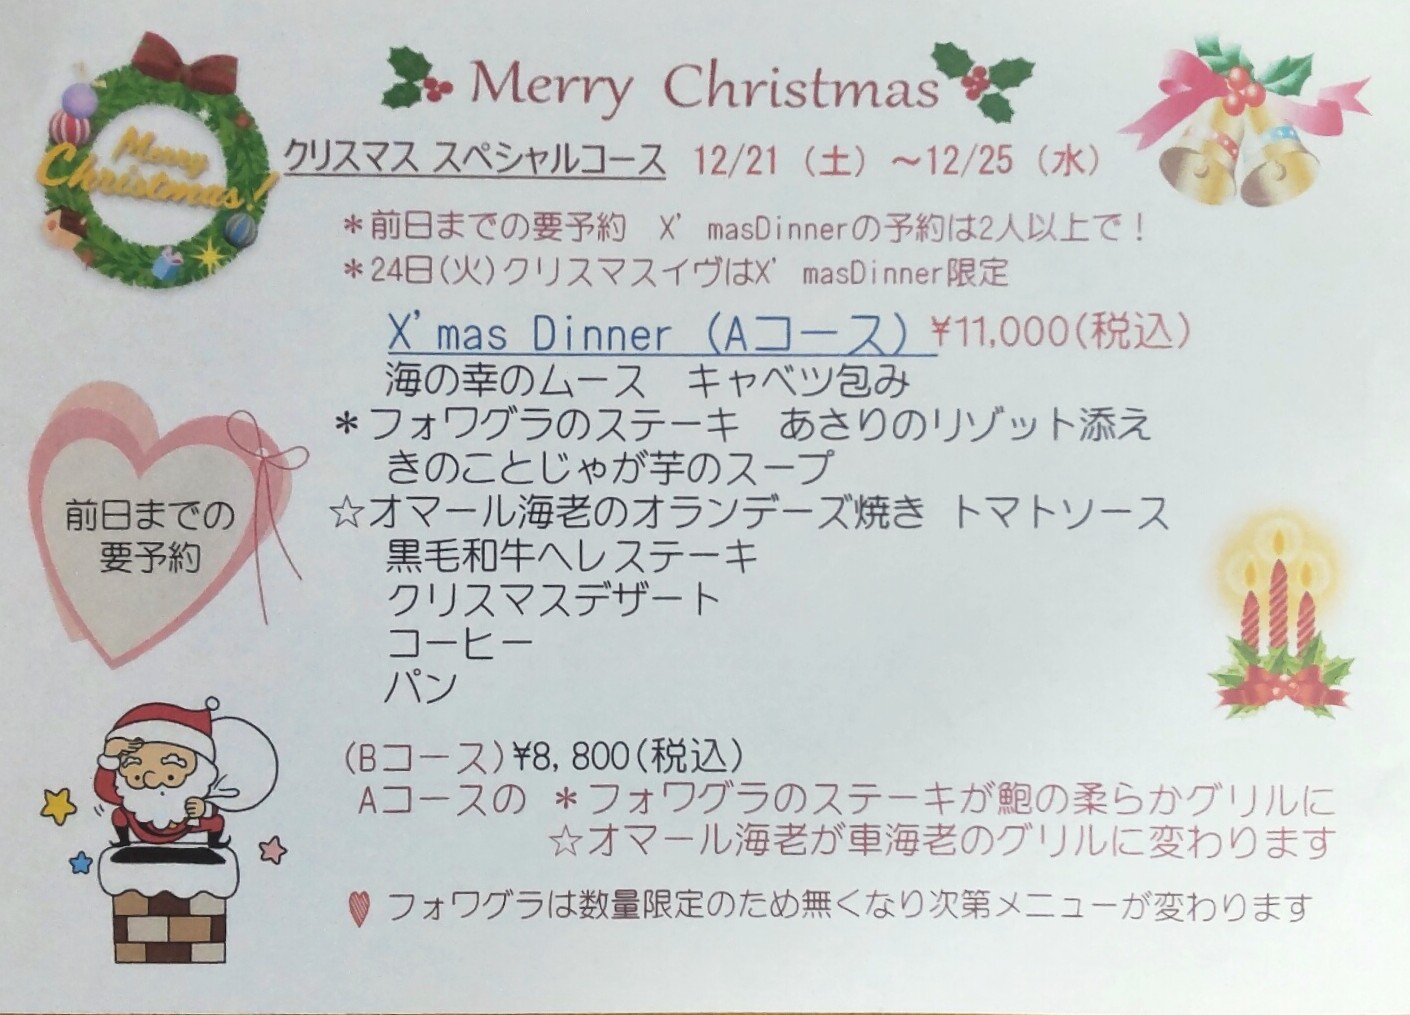 Merry Christmas
Merry
Christmas!
クリスマス スペシャルコース 12/21（土）～12/25（水）
＊前日までの要予約　X’masDinnerの予約は2人以上で！
＊24日(火)クリスマスイヴはX’masDinner限定
X’mas Dinner（Aコース）¥11,000(税込)
海の幸のムース　キャベツ包み
＊フォワグラのステーキ　あさりのリゾット添え
きのことじゃが芋のスープ
☆オマール海老のオランデーズ焼き トマトソース
黒毛和牛ヘレステーキ
クリスマスデザート
コーヒー
パン
前日までの
要予約
(Bコース)¥8,800(税込)
Aコースの ＊フォワグラのステーキが鮑の柔らかグリルに
☆オマール海老が車海老のグリルに変わります
フォワグラは数量限定のため無くなり次第メニューが変わります